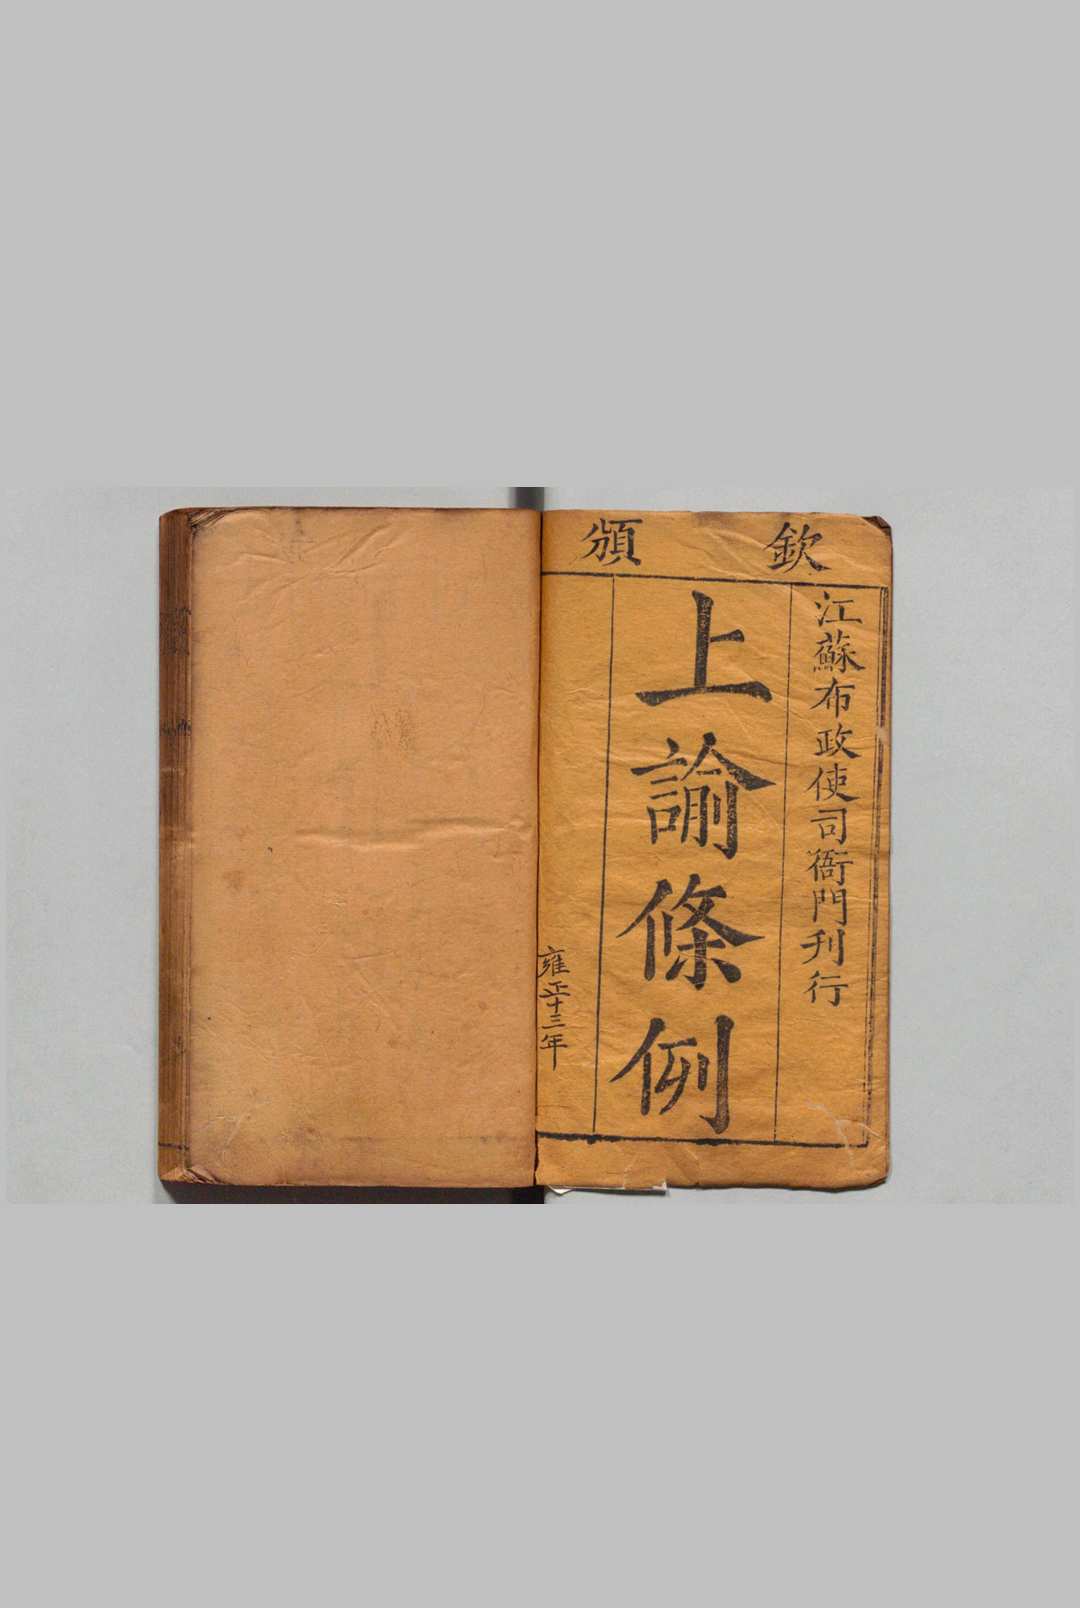 欽頒
江蘇布政使司衙門刊行
上諭條例
雍正十三年